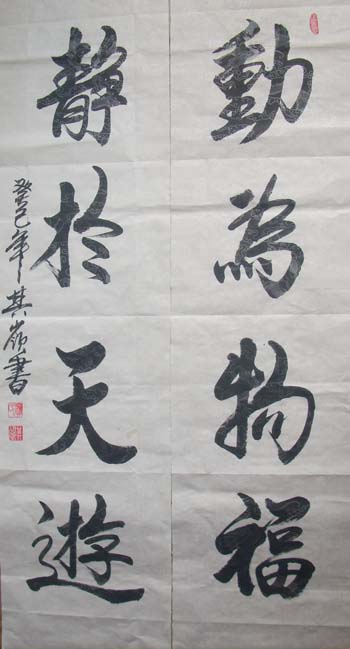 動為物福
静於天遊
癸巳年其嶺書